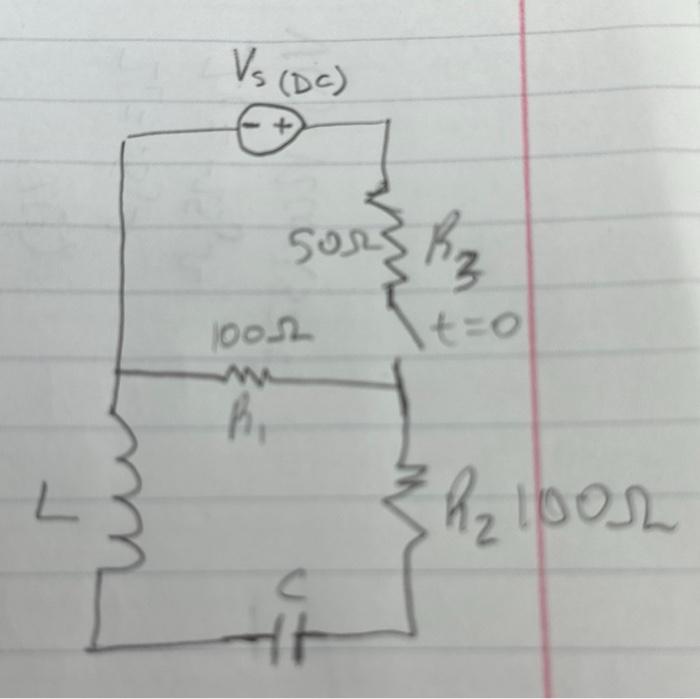 Vs (DC)
- +
50Ω R3
t=0
100Ω
R1
L
R2 100Ω
C